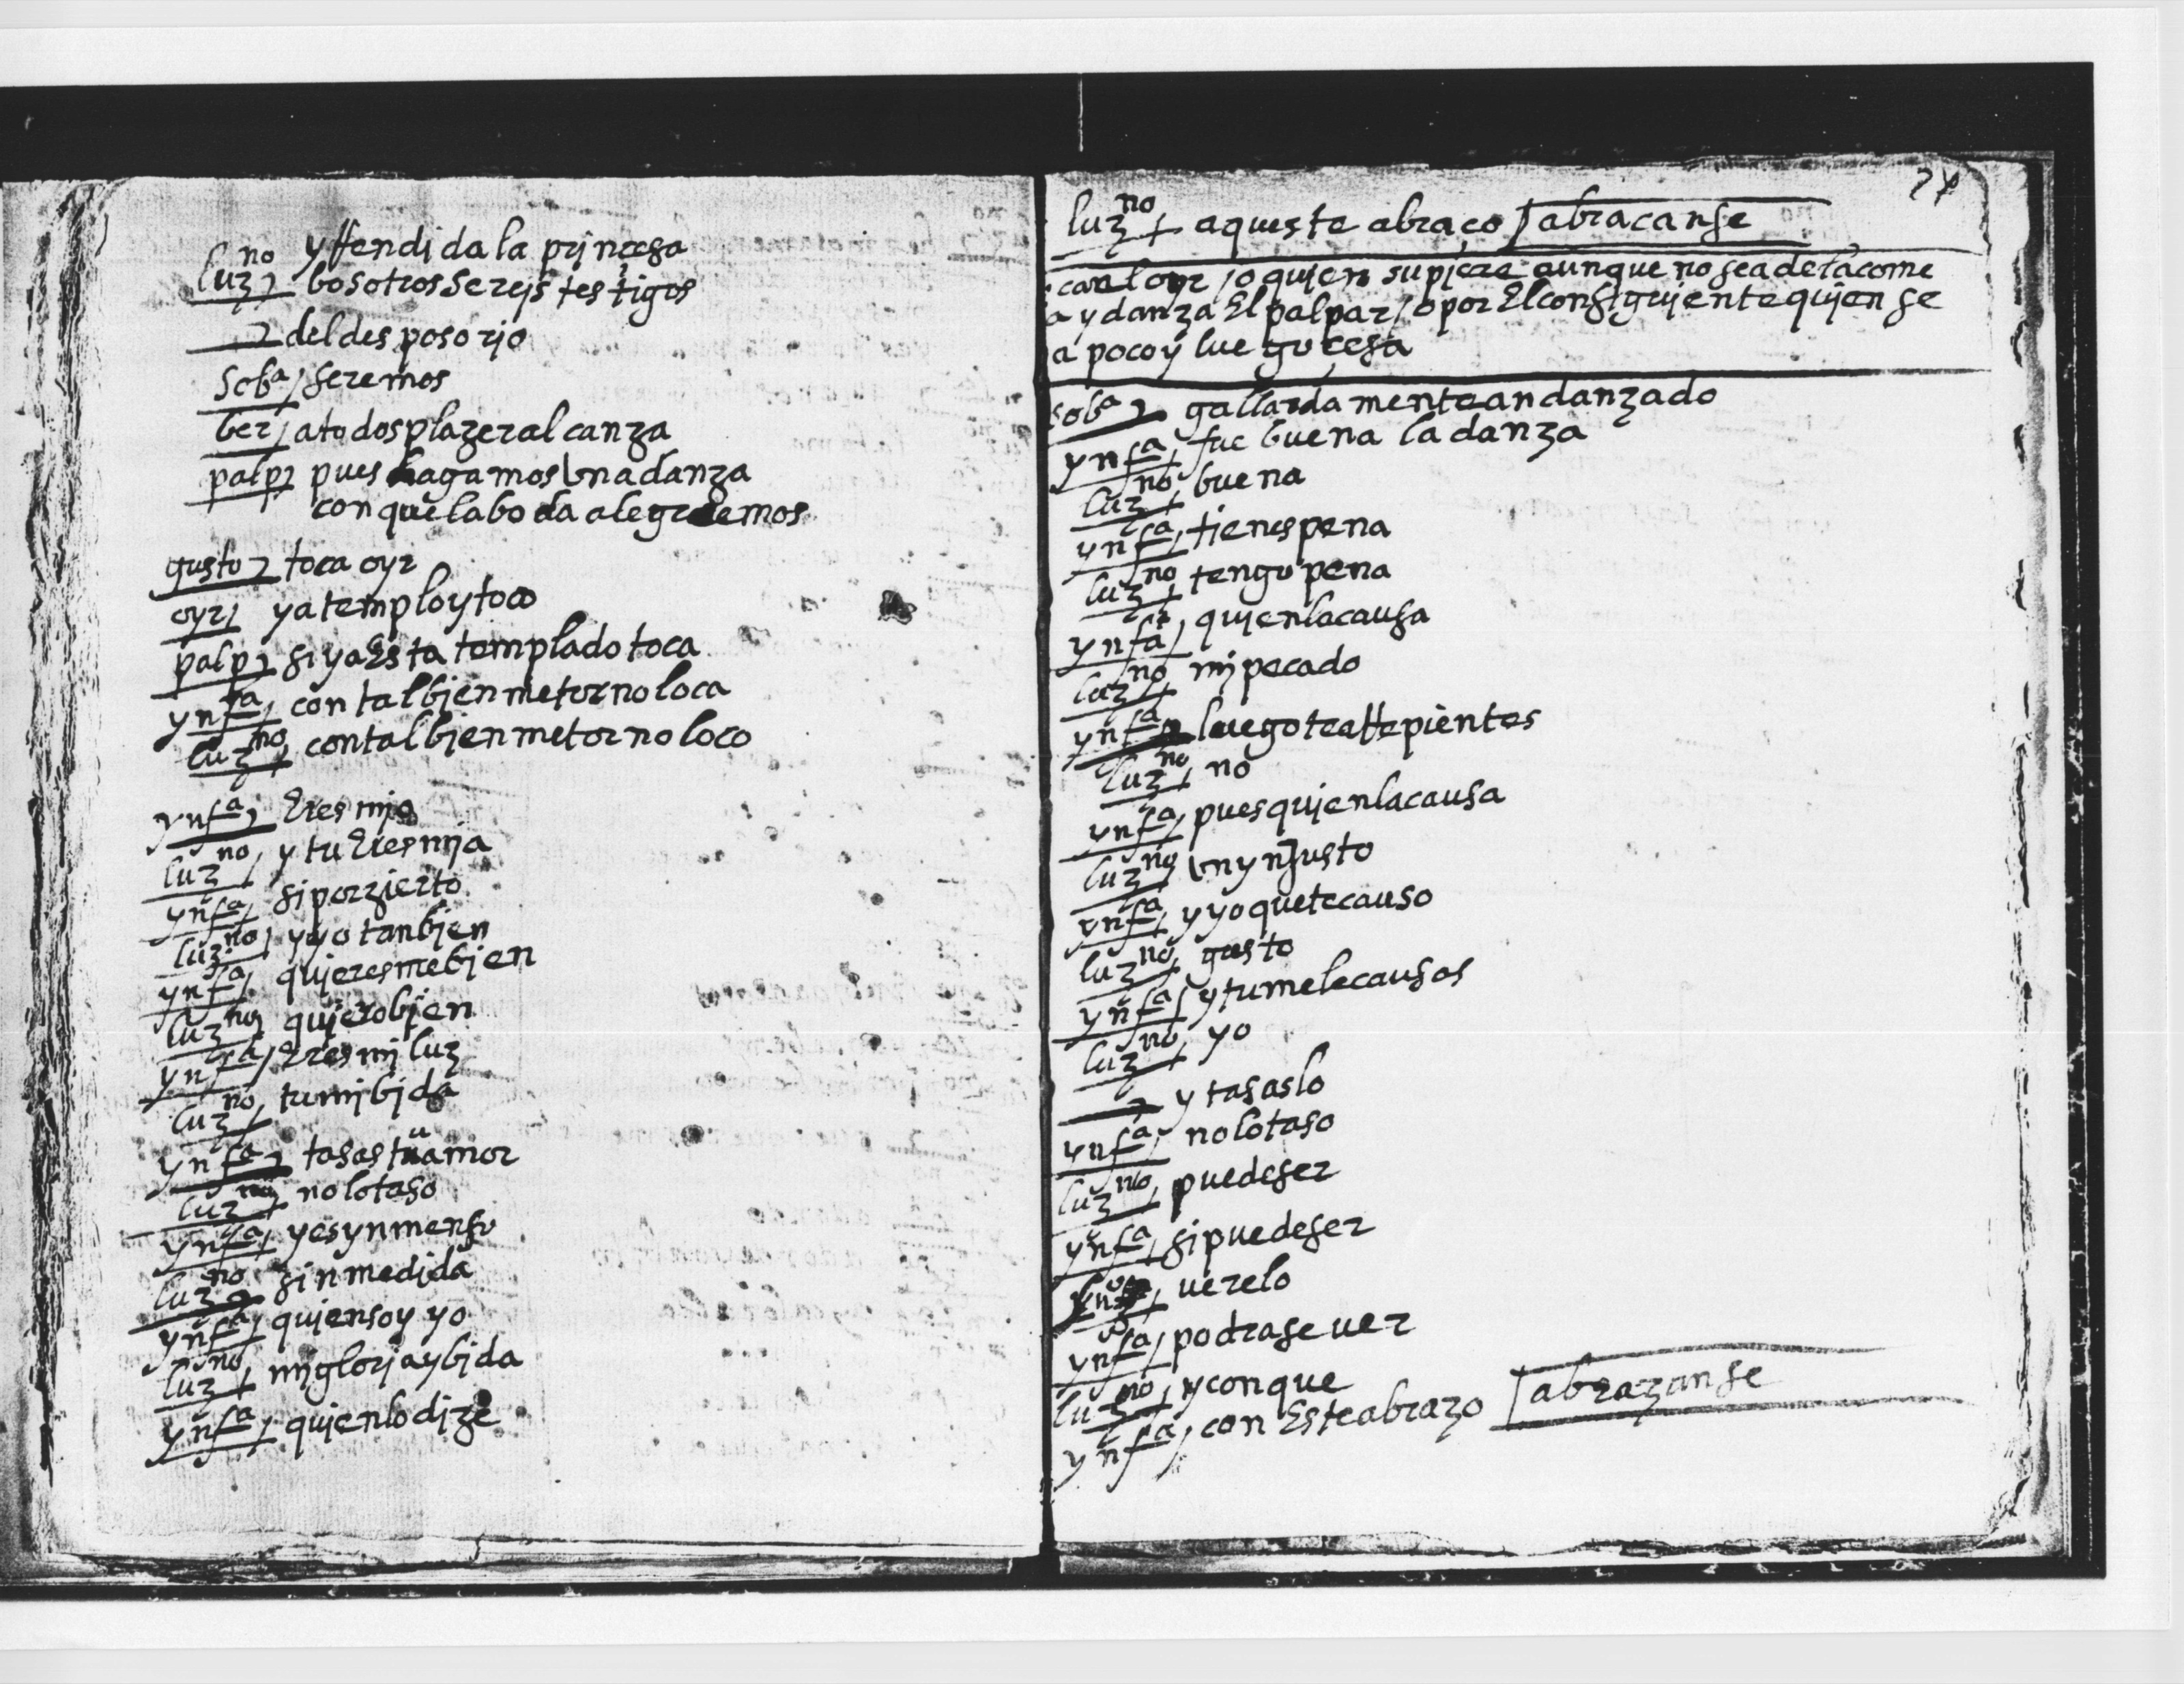 y Rendida la princesa
luzno bosotros sereis testigos
del desposorio
soba seremos
ber a todos plazer alcanza
palp pues hagamos vna danza
con que la boda alegremos
gusto toca oyr
oyr ya templo y toco
palp si ya Esta templado toca
ynfa con tal bien me torno loca
luzno con tal bien me torno loco
ynfa Eres mio
luzno y tu Eres mia
ynfa si por zierto
luzno y yo tanbien
ynfa quieresme bien
luzno quiero bien
ynfa Eres mi luz
luzno tu mi bida
ynfa tasas tu amor
luzno no lo taso
ynfa y es ynmenso
luzno sin medida
ynfa quien soy yo
luzno mi gloria y bida
ynfa quien lo dize
24
luzno aqueste abraço abraçanse
can loyr o quien supiere aunque no sea de la come
a y danza El palpar o por El consiguiente quien se
a poco y luego cesa
soba gallardamente an danzado
ynfa fue buena la danza
luzno buena
ynfa tienes pena
luzno tengo pena
ynfa quien la causa
luzno mi pecado
ynfa luego te aRepientes
luzno no
ynfa pues quien la causa
luzno vn ynjusto
ynfa y yo que te causo
luzno gusto
ynfa y tu me le causas
luzno yo
y tasaslo
ynfa no lo taso
luzno puede ser
ynfa si puede ser
verelo
ynfa podrase ver
luzno y con que
ynfa con Este abrazo abrazanse